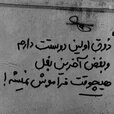 ذوق اولین دوستت دارم
وبغض آخرین بغل
هیچوقت فراموش نمیشه!